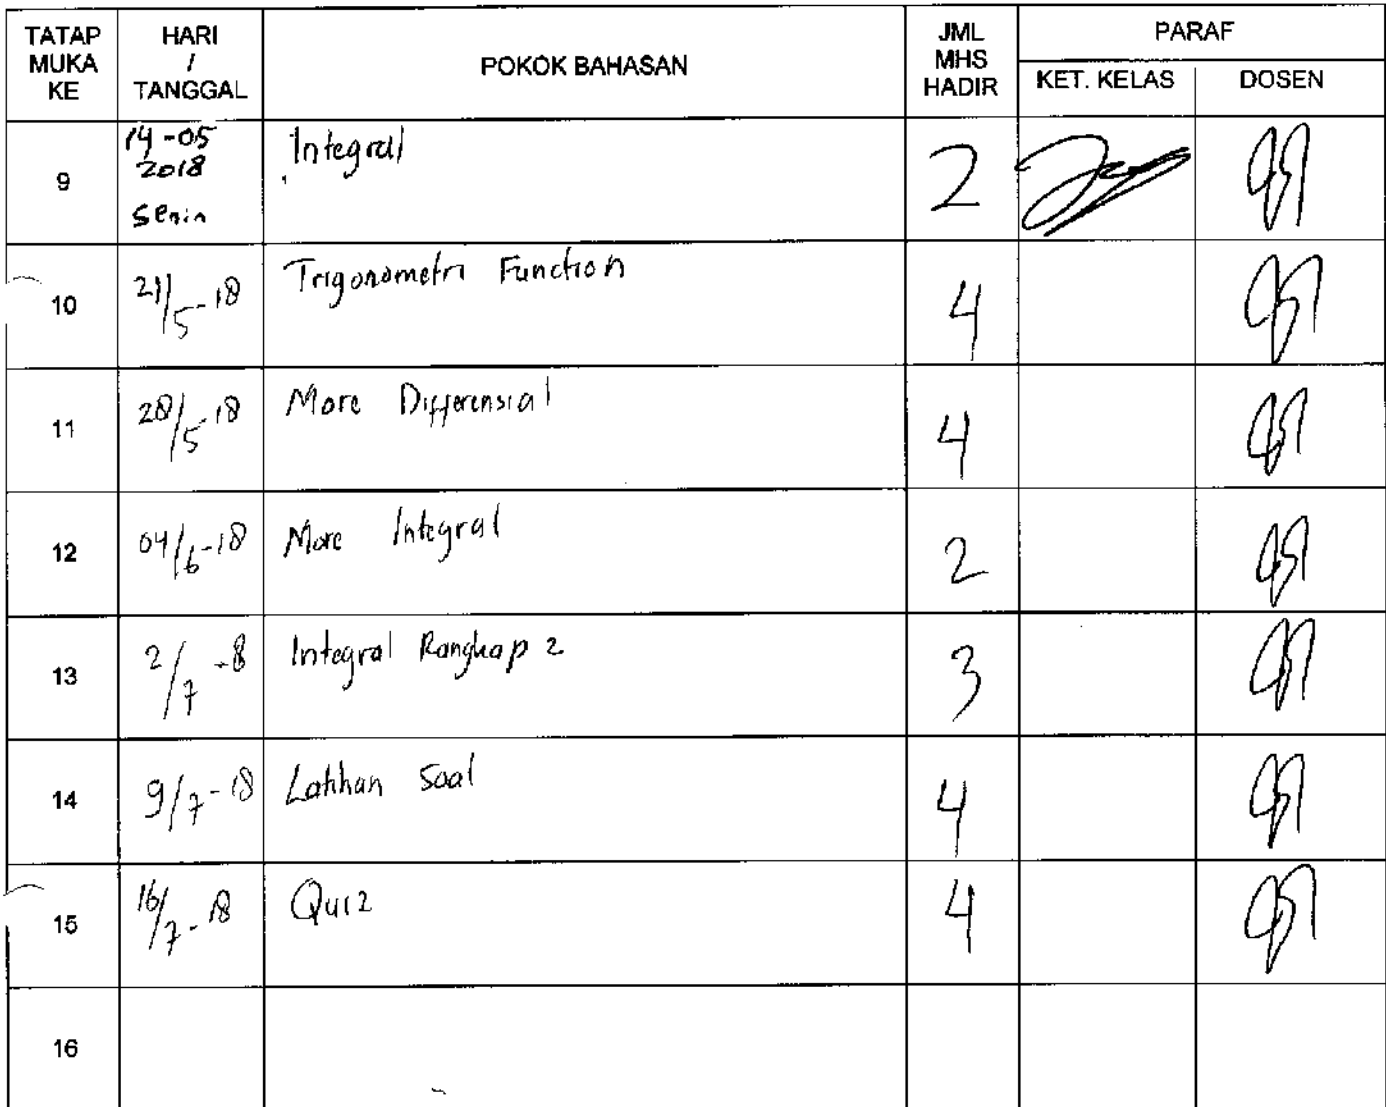 TATAP MUKA KE HARI / TANGGAL POKOK BAHASAN JML MHS HADIR PARAF
KET. KELAS DOSEN
9 14-05 2018 Senin Integral 2
10 21/5-18 Trigonometri Function 4
11 28/5-18 More Differensial 4
12 04/6-18 More Integral 2
13 2/7-8 Integral Rangkap 2 3
14 9/7-18 Latihan Soal 4
15 16/7-18 Quiz 4
16